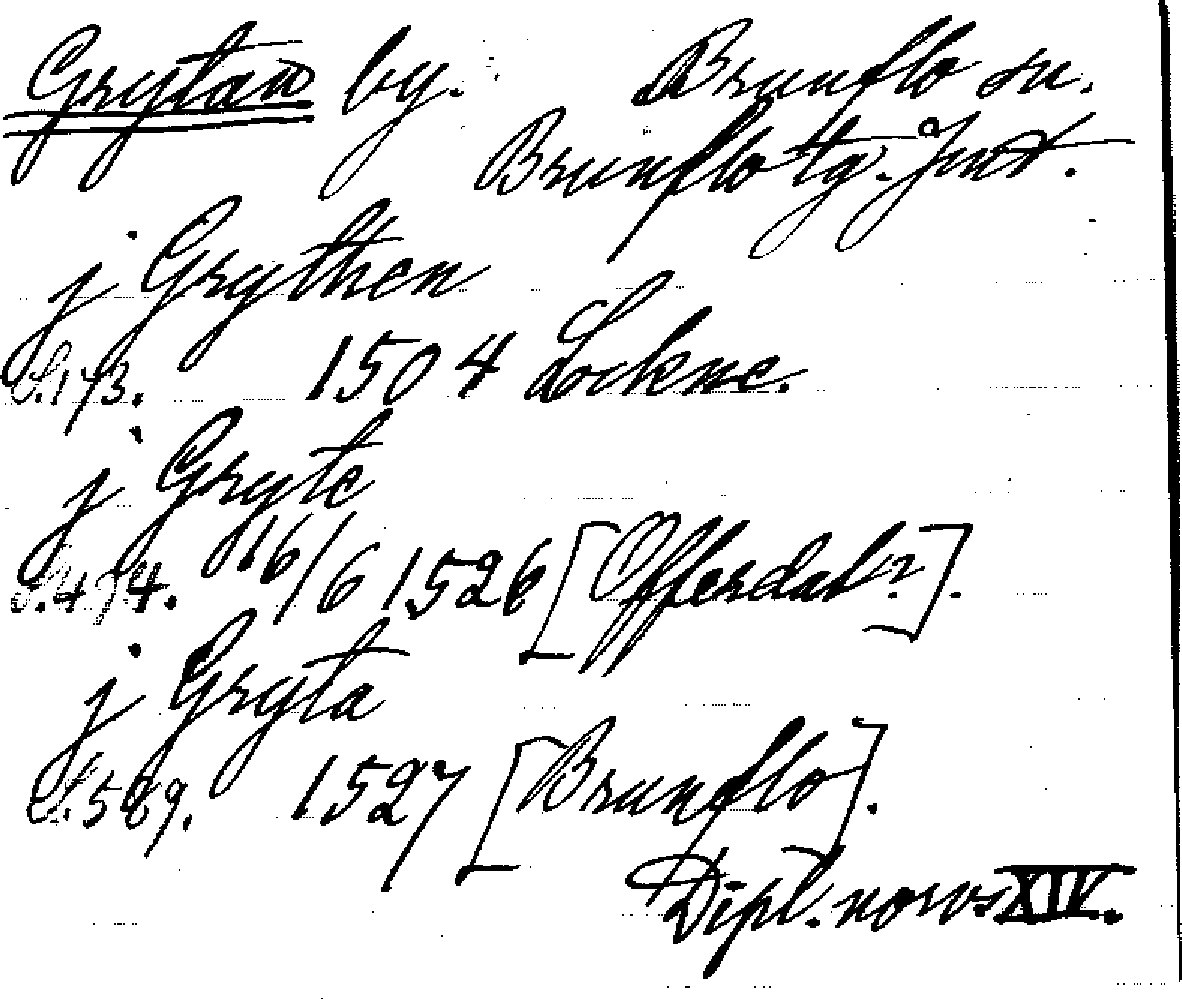 Grytan by. Brunflo sn.
Brunflo tg. Jmt.
j Grythen
S.173. 1504 Lockne.
j Gryte
S.474. 16/6 1526 [Offerdal?].
j Gryta
S.589. 1527 [Brunflo].
Dipl. norv. XIV.